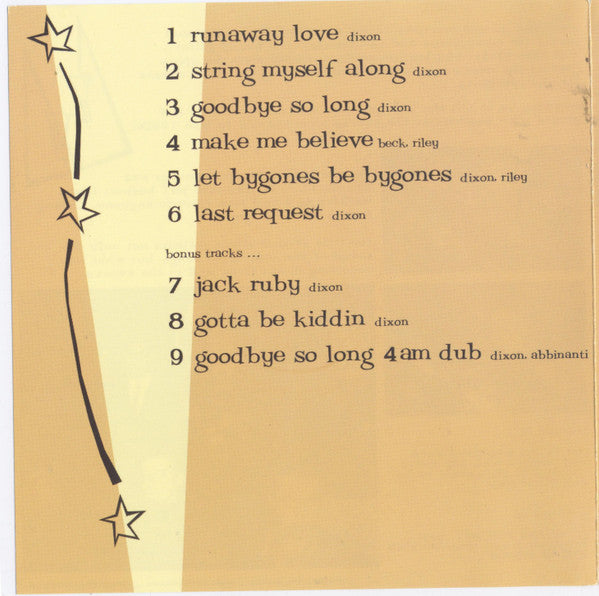 1 runaway love dixon
2 string myself along dixon
3 goodbye so long dixon
4 make me believe beck, riley
5 let bygones be bygones dixon, riley
6 last request dixon
bonus tracks ...
7 jack ruby dixon
8 gotta be kiddin dixon
9 goodbye so long 4am dub dixon, abbinanti